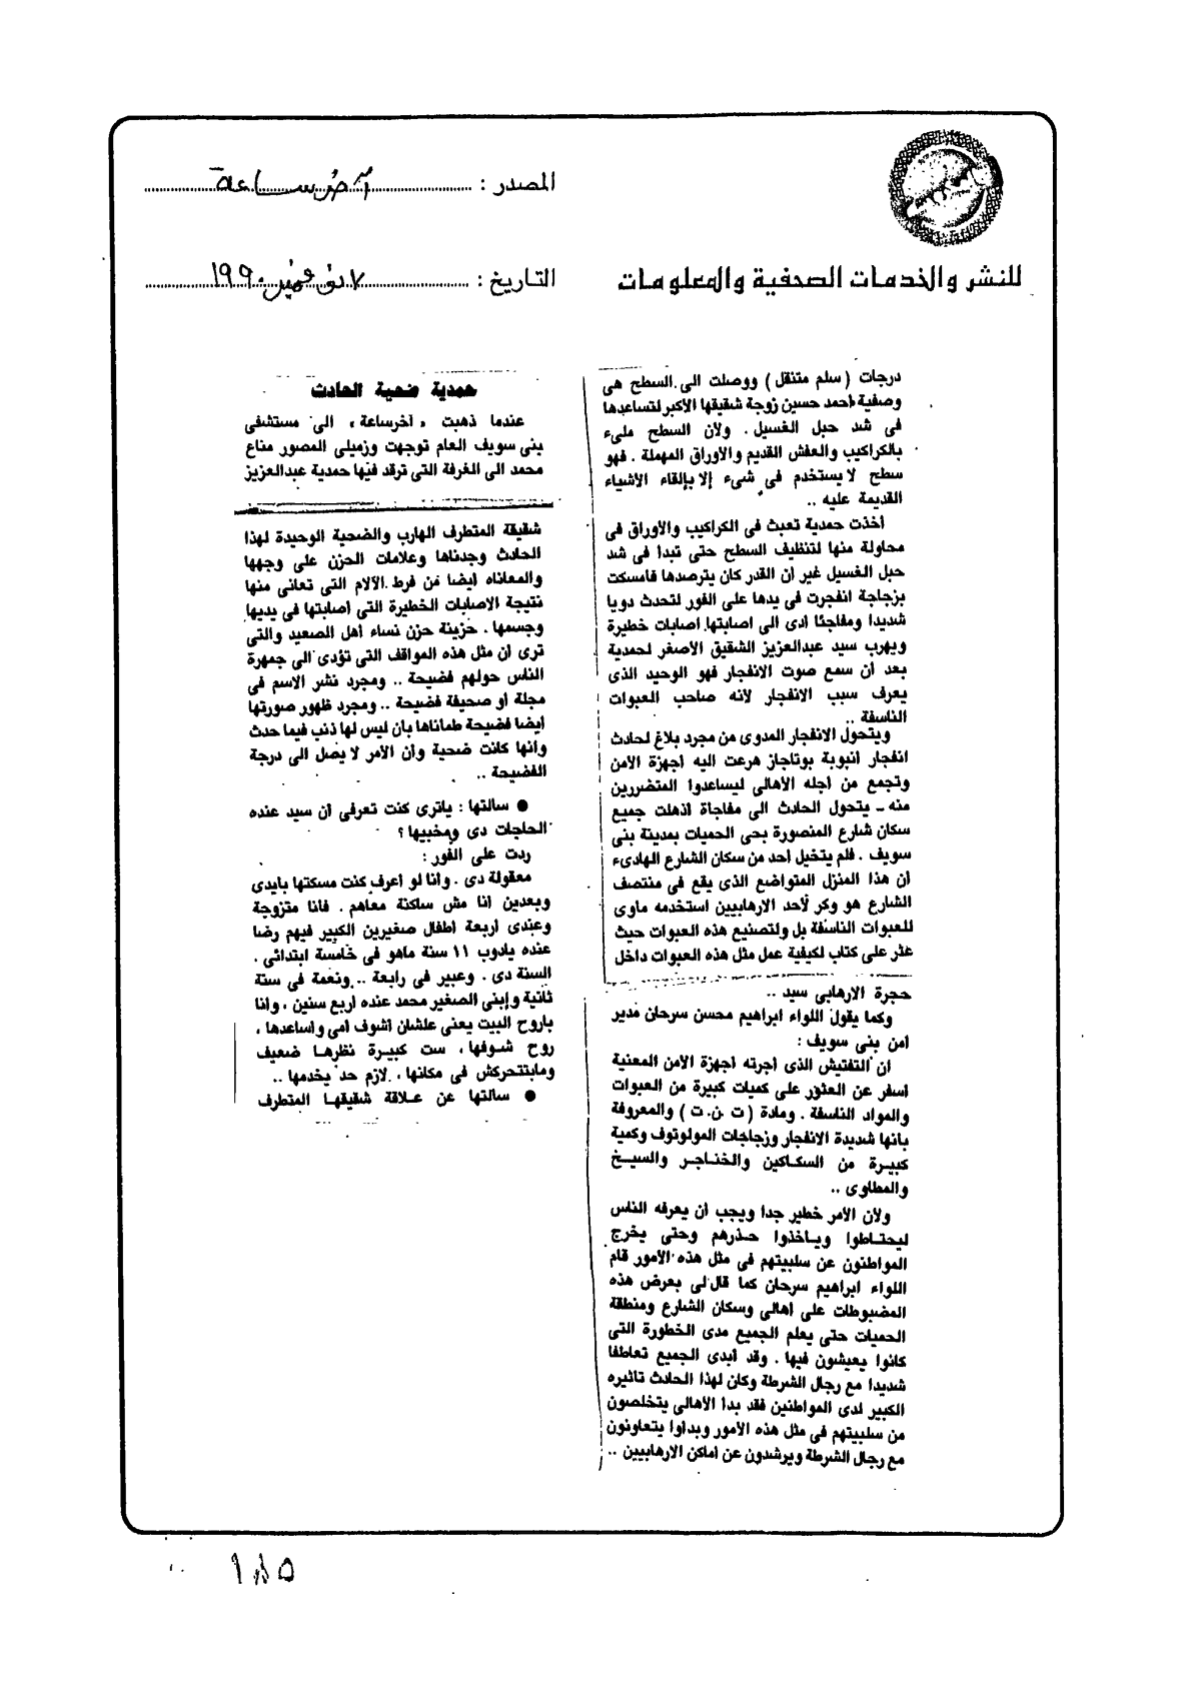 المصدر : آخر ساعة
للنشر والخدمات الصحفية والمعلومات
التاريخ : ٧ نوفمبر ١٩٩٠
درجات (سلم متنقل) ووصلت الى السطح هى
وصفية احمد حسين زوجة شقيقها الأكبر لتساعدها
فى شد حبل الغسيل . ولان السطح ملىء
بالكراكيب والعفش القديم والأوراق المهملة . فهو
سطح لا يستخدم فى شىء إلا بإلقاء الأشياء
القديمة عليه ..
اخذت حمدية تعبث فى الكراكيب والأوراق فى
محاولة منها لتنظيف السطح حتى تبدا فى شد
حبل الغسيل غير ان القدر كان يترصدها فامسكت
بزجاجة انفجرت فى يدها على الفور لتحدث دويا
شديدا ومفاجئا ادى الى اصابتها اصابات خطيرة
ويهرب سيد عبدالعزيز الشقيق الأصغر لحمدية
بعد ان سمع صوت الانفجار فهو الوحيد الذى
يعرف سبب الانفجار لانه صاحب العبوات
الناسفة ..
ويتحول الانفجار المدوى من مجرد بلاغ لحادث
انفجار انبوبة بوتاجاز هرعت اليه اجهزة الأمن
وتجمع من اجله الأهالى ليساعدوا المتضررين
منه ـ يتحول الحادث الى مفاجاة اذهلت جميع
سكان شارع المنصورة بحى الحميات بمدينة بنى
سويف . فلم يتخيل احد من سكان الشارع الهادىء
ان هذا المنزل المتواضع الذى يقع فى منتصف
الشارع هو وكر لأحد الارهابيين استخدمه ماوى
للعبوات الناسفة بل ولتصنيع هذه العبوات حيث
عثر على كتاب لكيفية عمل مثل هذه العبوات داخل
حجرة الارهابى سيد ..
وكما يقول اللواء ابراهيم محسن سرحان مدير
امن بنى سويف :
ان التفتيش الذى اجرته اجهزة الأمن المعنية
اسفر عن العثور على كميات كبيرة من العبوات
والمواد الناسفة . ومادة (ت .ن. ت) والمعروفة
بانها شديدة الانفجار وزجاجات المولوتوف وكمية
كبيرة من السكاكين والخناجر والسيخ
والمطاوى ..
ولان الأمر خطير جدا ويجب ان يعرفه الناس
ليحتاطوا وياخذوا حذرهم وحتى يخرج
المواطنون عن سلبيتهم فى مثل هذه الأمور قام
اللواء ابراهيم سرحان كما قال لى بعرض هذه
المضبوطات على اهالى وسكان الشارع ومنطقة
الحميات حتى يعلم الجميع مدى الخطورة التى
كانوا يعيشون فيها . وقد ابدى الجميع تعاطفا
شديدا مع رجال الشرطة وكان لهذا الحادث تاثيره
الكبير لدى المواطنين فقد بدا الأهالى يتخلصون
من سلبيتهم فى مثل هذه الأمور وبداوا يتعاونون
مع رجال الشرطة ويرشدون عن اماكن الارهابيين ..
حمدية ضحية الحادث
عندما ذهبت « آخرساعة » الى مستشفى
بنى سويف العام توجهت وزميلى المصور مناع
محمد الى الغرفة التى ترقد فيها حمدية عبدالعزيز
شقيقة المتطرف الهارب والضحية الوحيدة لهذا
الحادث وجدناها وعلامات الحزن على وجهها
والمعاناه ايضا من فرط الآلام التى تعانى منها
نتيجة الاصابات الخطيرة التى اصابتها فى يديها
وجسمها . حزينة حزن نساء اهل الصعيد والتى
ترى ان مثل هذه المواقف التى تؤدى الى جمهرة
الناس حولهم فضيحة .. ومجرد نشر الاسم فى
مجلة او صحيفة فضيحة .. ومجرد ظهور صورتها
ايضا فضيحة طماناها بان ليس لها ذنب فيما حدث
وانها كانت ضحية وان الأمر لا يصل الى درجة
الفضيحة ..
● سالتها : ياترى كنت تعرفى ان سيد عنده
الحاجات دى ومخبيها ؟
ردت على الفور :
معقولة دى . وانا لو اعرف كنت مسكتها بايدى
وبعدين انا مش ساكنة معاهم . فانا متزوجة
وعندى اربعة اطفال صغيرين الكبير فيهم رضا
عنده يادوب ١١ سنة ماهو فى خامسة ابتدائى .
السنة دى . وعبير فى رابعة .. ونعمة فى سنة
ثانية وإبنى الصغير محمد عنده اربع سنين ، وانا
باروح البيت يعنى علشان اشوف امى واساعدها ،
روح شوفها ، ست كبيرة نظرها ضعيف
ومابتتحركش فى مكانها ، لازم حد يخدمها ..
● سالتها عن علاقة شقيقها المتطرف
١٨٥